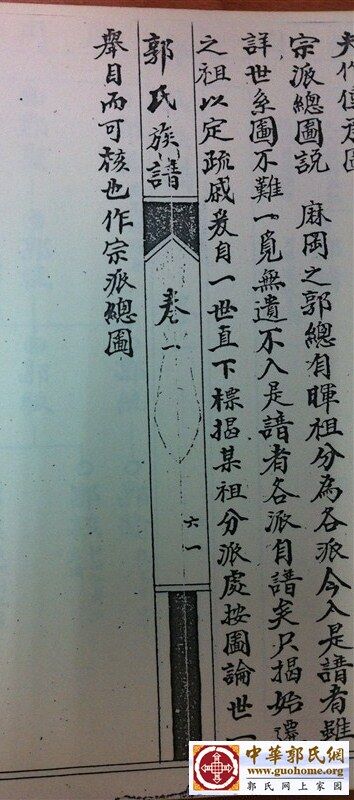 宗派總圖說 麻岡之郭總有暉祖分為各派今入是譜者雖
詳世系圖不難一覓無遺不入是譜者各派自譜矣只揭始遷
之祖以定疏戚爰自一世直下標揭某祖分派處按圖論世一
郭氏族譜 卷一 六一
舉目而可核也作宗派總圖
中華郭氏網
www.guohome.org
郭氏网上家园